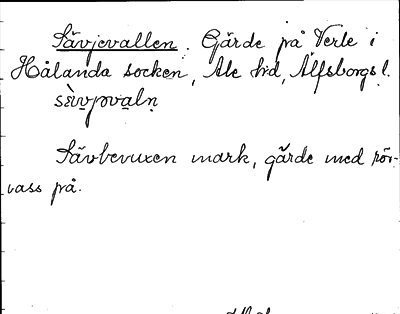 Sävjevallen. Gärde på Verle i
Hålanda socken, Ale hd, Älfsborgs l.
Sävbevuxen mark, gärde med rör-
vass på.